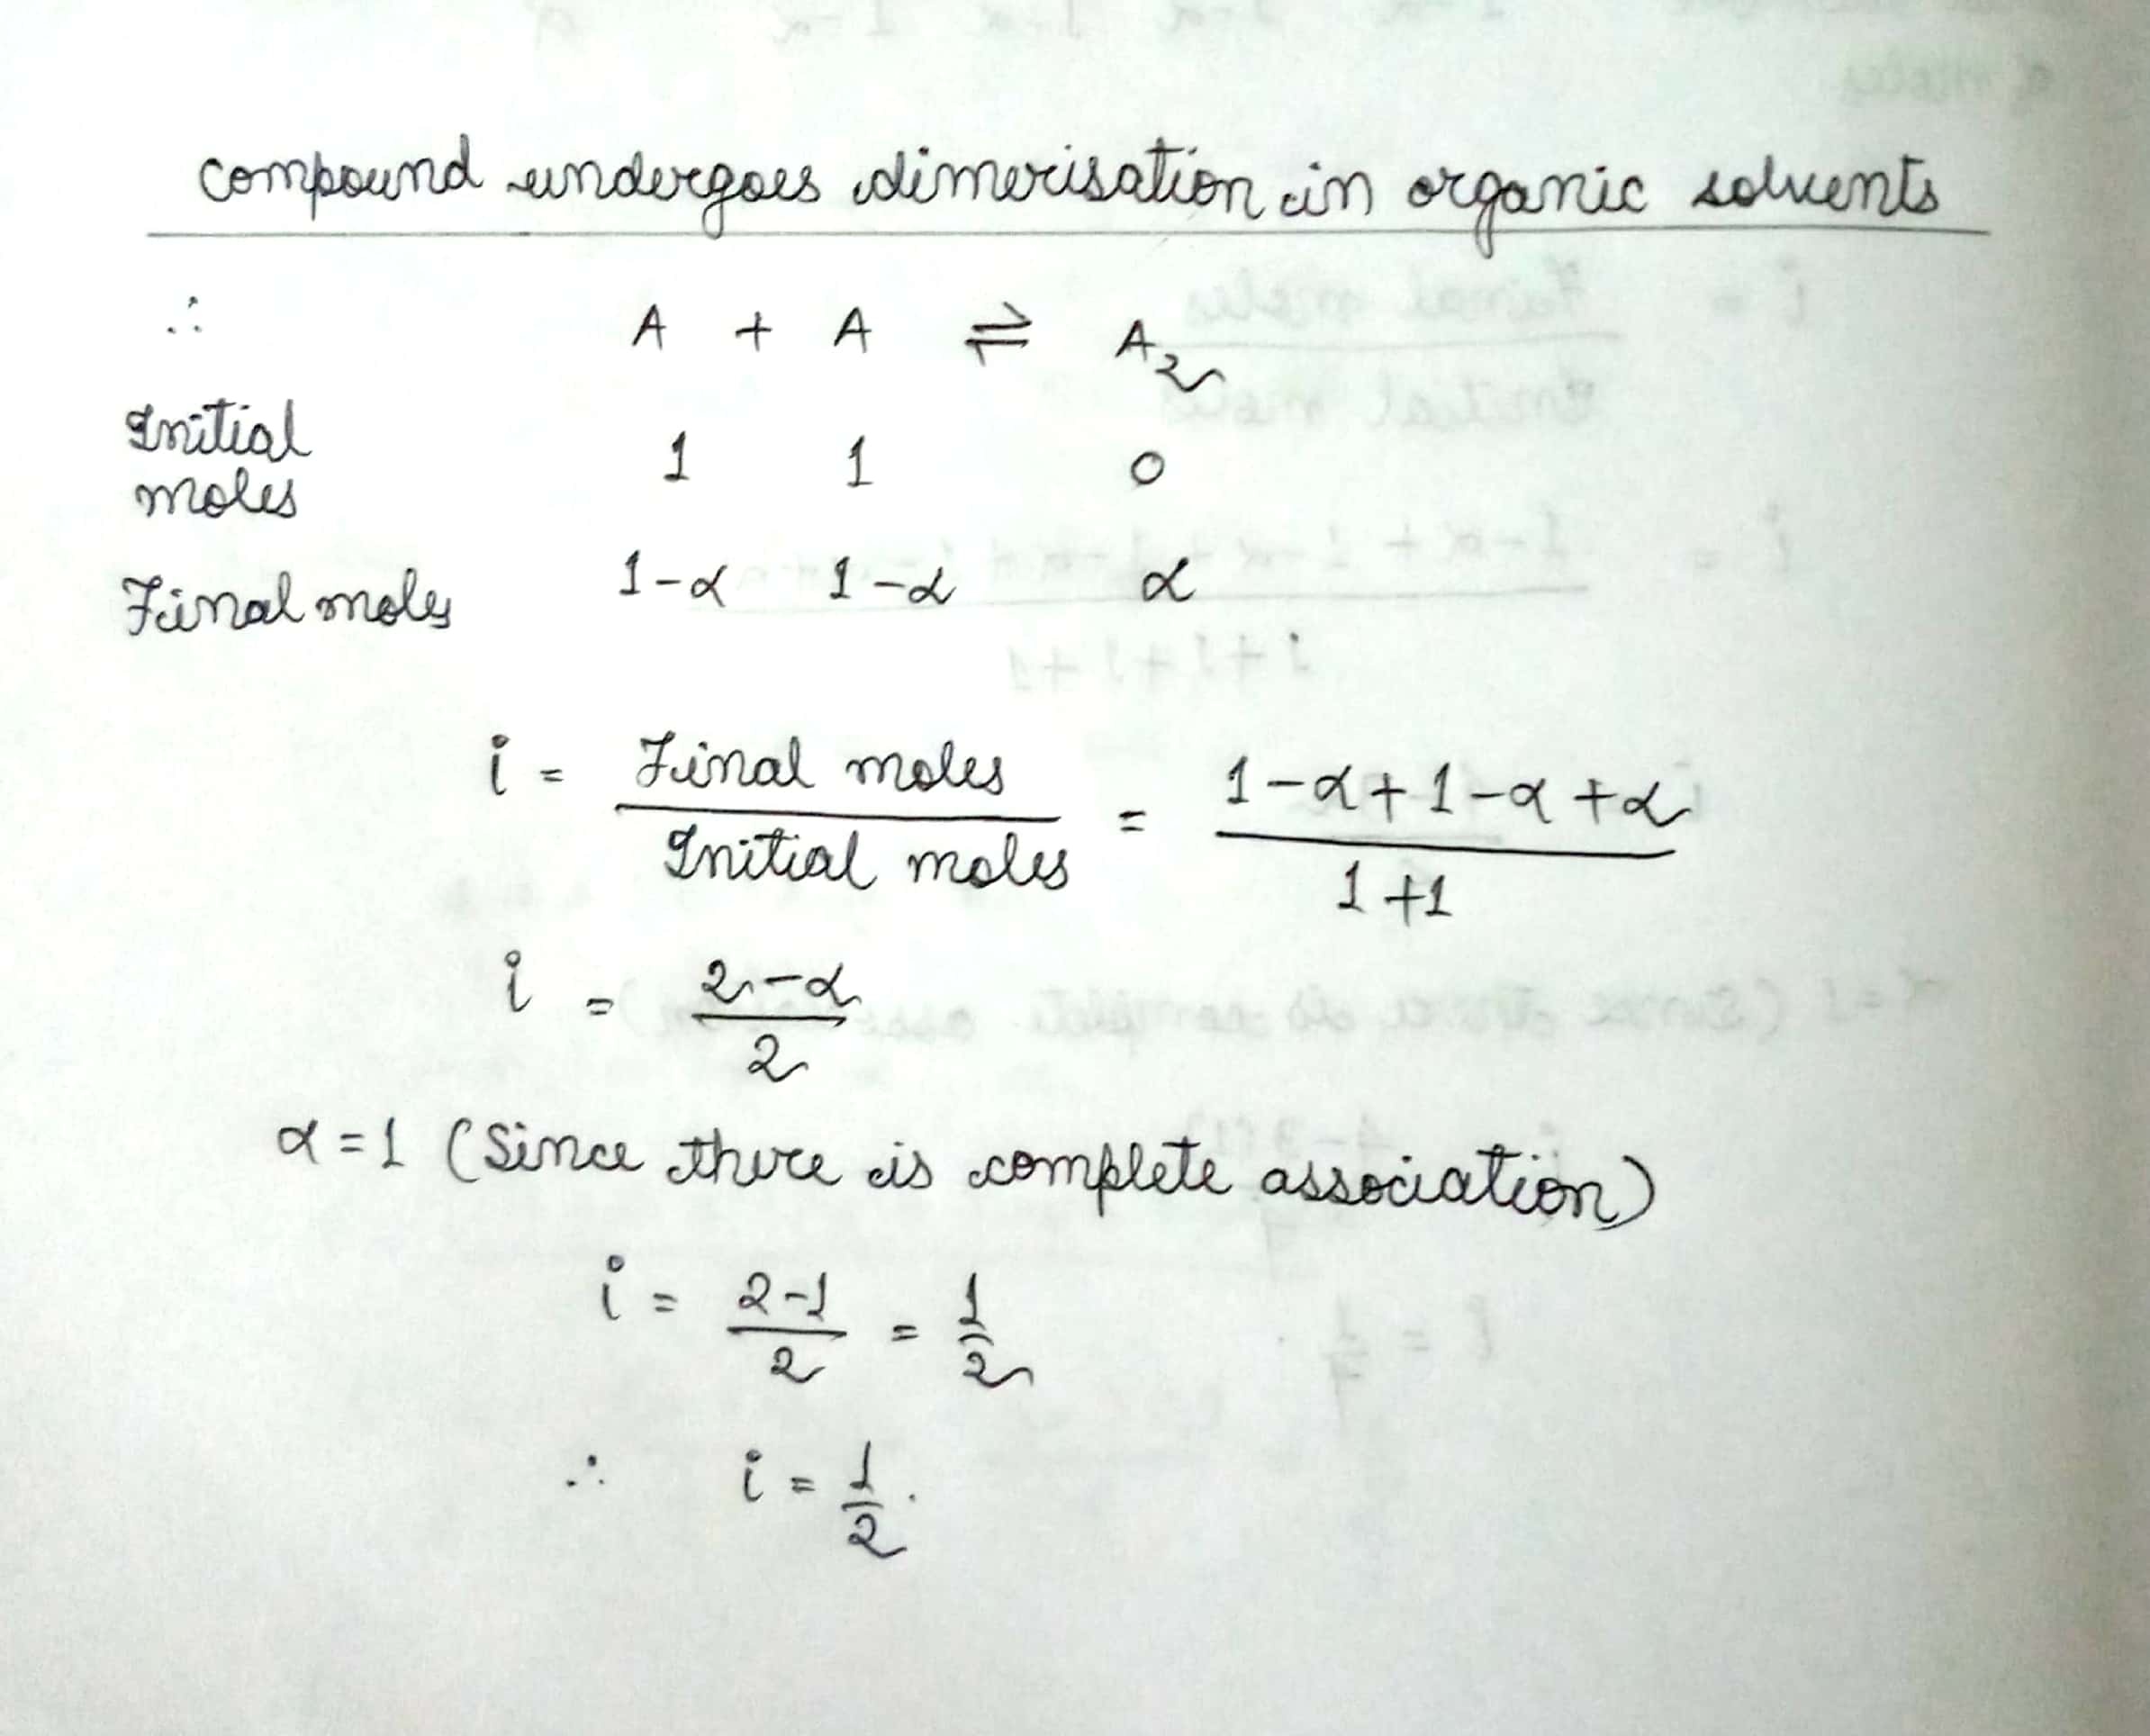 compound undergoes dimerisation in organic solvents
∴ A + A ⇌ A₂
Initial moles 1 1 0
Final moles 1-α 1-α α
i = Final moles / Initial moles = 1-α+1-α+α / 1+1
i = 2-α / 2
α = 1 (Since there is complete association)
i = 2-1 / 2 = 1/2
∴ i = 1/2.